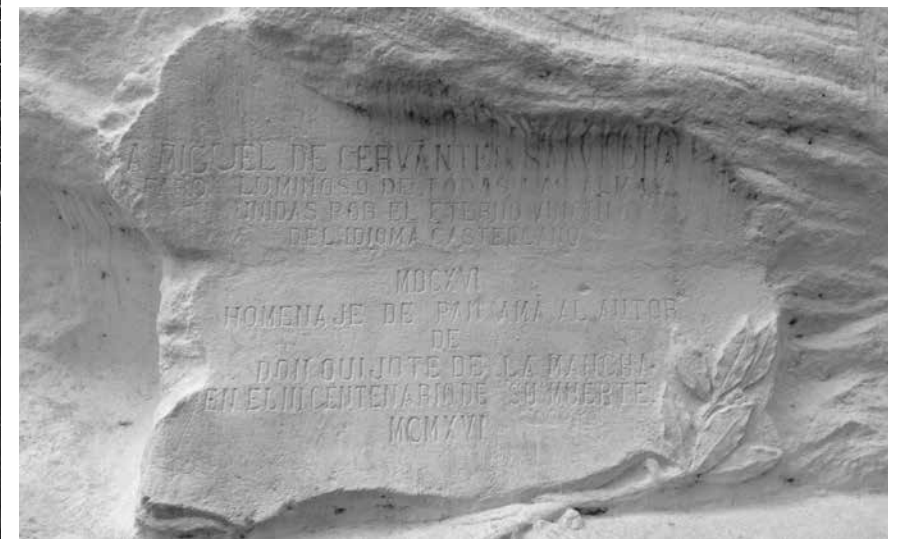 A MIGUEL DE CERVANTES SAAVEDRA
FARO LUMINOSO DE TODAS LAS ALMAS
UNIDAS POR EL ETERNO VINCULO
DEL IDIOMA CASTELLANO
MDCXVI
HOMENAJE DE PANAMÁ AL AUTOR
DE
DON QUIJOTE DE LA MANCHA
EN EL III CENTENARIO DE SU MUERTE
MCMXVI